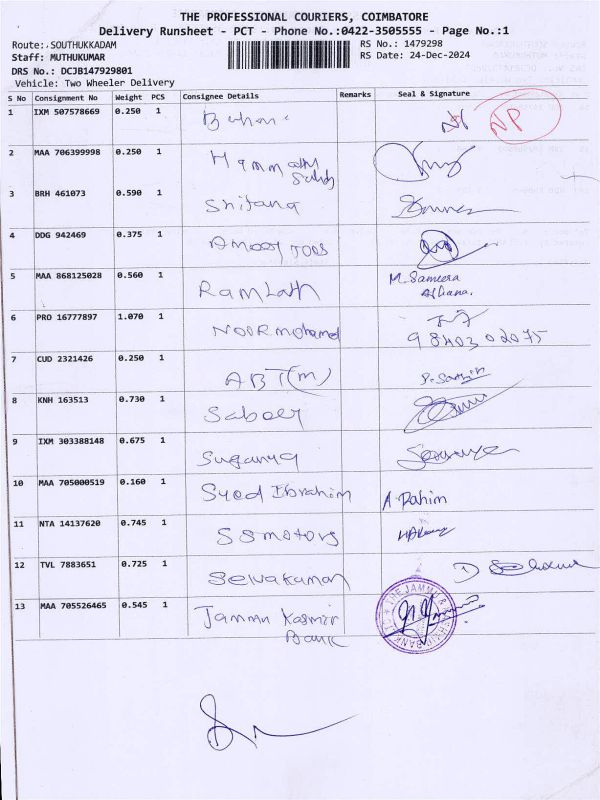 THE PROFESSIONAL COURIERS, COIMBATORE
Delivery Runsheet - PCT - Phone No.:0422-3505555 - Page No.:1
Route:.SOUTHUKKADAM RS No.: 1479298
Staff: MUTHUKUMAR RS Date: 24-Dec-2024
DRS No.: DCJB147929801
Vehicle: Two Wheeler Delivery
S No Consignment No Weight PCS Consignee Details Remarks Seal & Signature
1 IXM 507578669 0.250 1 NP
2 MAA 706399998 0.250 1
3 BRH 461073 0.590 1 Shifana
4 DDG 942469 0.375 1
5 MAA 868125028 0.560 1 Ramlath M. Sameera
Afsana.
6 PRO 16777897 1.070 1 NOOR mohamed
7 CUD 2321426 0.250 1 ABT(m)
8 KNH 163513 0.730 1 Sabeer
9 IXM 303388148 0.675 1 Suganya
10 MAA 705000519 0.160 1 Syed Ibrahim A Rahim
11 NTA 14137620 0.745 1 SSmotors
12 TVL 7883651 0.725 1 Selvakumar
13 MAA 705526465 0.545 1 Jammu Kasmir
Bank